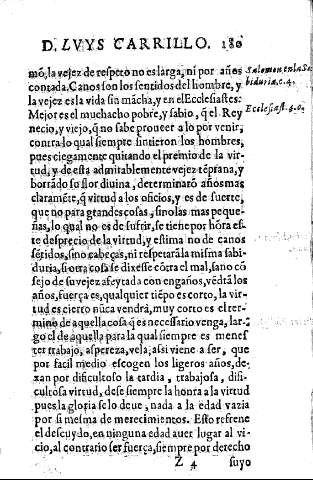 D. LVYS CARRILLO. 180
mó, la vejez de respeto no es larga, ni por años
contada. Canos son los sentidos del hombre, y
la vejez es la vida sin mácha, y en el Ecclesiastes:
Mejor es el muchacho pobre, y sabio, q̃ el Rey
necio, y viejo, q̃ no sabe proueer a lo por venir,
contra lo qual siempre sintieron los hombres,
pues ciegamente quitando el premio de la vir-
tud, y de esta admitablemente vejez tẽprana, y
borrãdo su flor diuina, determinarõ años mas
claramẽte, q̃ virtud a los oficios, y es de suerte,
que no para grandes cosas, sino las mas peque-
ñas, lo qual no es de sufrir, se tiene por hõra es-
te desprecio de la virtud, y estima no de canos
sẽtidos, sino cabeças, ni respetarã la misma sabi-
duria, si otra cosa se dixesse cõtra el mal, sano cõ
sejo de su vejez afeytada con engaños, vẽdrã los
años, fuerça es, qualquier tiẽpo es corto, la vir-
tud es cierto nũca vendrá, muy corto es el ter-
mino de aquella cosa q̃ es necessario venga, lar-
go el de aquella para la qual siempre es menes
ter trabajo, aspereza, vela, assi viene a ser, que
por facil medio escogen los ligeros años, de-
xan por dificultoso la tardia, trabajosa, difi-
cultosa virtud, dese siempre la honra a la virtud
pues la gloria se lo deue, nada a la edad vazia
por si mesma de merecimientos. Esto refrene
el descuydo, en ninguna edad auer lugar al vi-
cio, al contrario ser fuerça, siempre por derecho
Z 4 suyo
Salomon, en la Sa
biduria, c. 4.
Ecclesiast. 4.